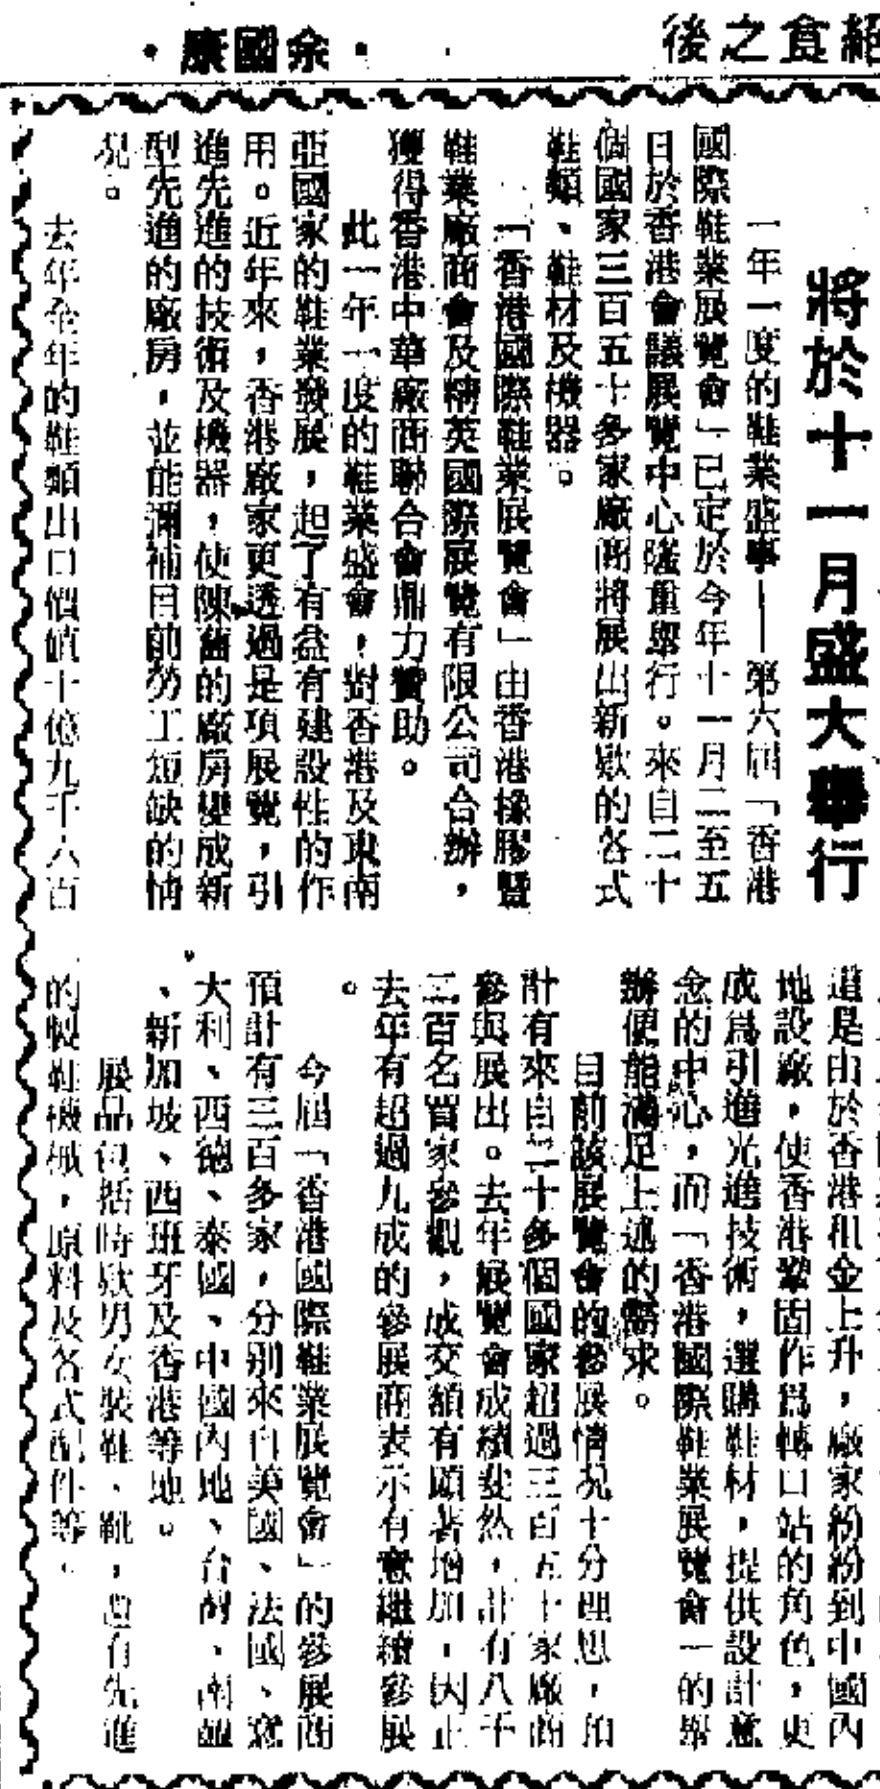 絕食之後
・余國康・
將於十一月盛大舉行
一年一度的鞋業盛事——第六屆「香港
國際鞋業展覽會」已定於今年十一月二至五
日於香港會議展覽中心隆重舉行。來自二十
個國家三百五十多家廠商將展出新欵的各式
鞋類、鞋材及機器。
「香港國際鞋業展覽會」由香港橡膠暨
鞋業廠商會及精英國際展覽有限公司合辦，
獲得香港中華廠商聯合會鼎力贊助。
此一年一度的鞋業盛會，對香港及東南
亞國家的鞋業發展，起了有益有建設性的作
用。近年來，香港廠家更透過是項展覽，引
進先進的技術及機器，使陳舊的廠房變成新
型先進的廠房，並能彌補目前勞工短缺的情
况。
去年全年的鞋類出口價值十億九千六百
這是由於香港租金上升，廠家紛紛到中國內
地設廠，使香港鞏固作爲轉口站的角色，更
成爲引進先進技術，選購鞋材，提供設計意
念的中心，而「香港國際鞋業展覽會」的舉
辦便能滿足上述的需求。
目前該展覽會的參展情况十分理想，預
計有來自二十多個國家超過三百五十家廠商
參與展出。去年展覽會成績斐然，計有八千
三百名買家參觀，成交額有顯著增加，因此
去年有超過九成的參展商表示有意繼續參展
。
今屆「香港國際鞋業展覽會」的參展商
預計有三百多家，分別來自美國、法國、意
大利、西德、泰國、中國內地、台灣、南韓
、新加坡、西班牙及香港等地。
展品包括時欵男女裝鞋、靴，還有先進
的製鞋機械，原料及各式配件等。